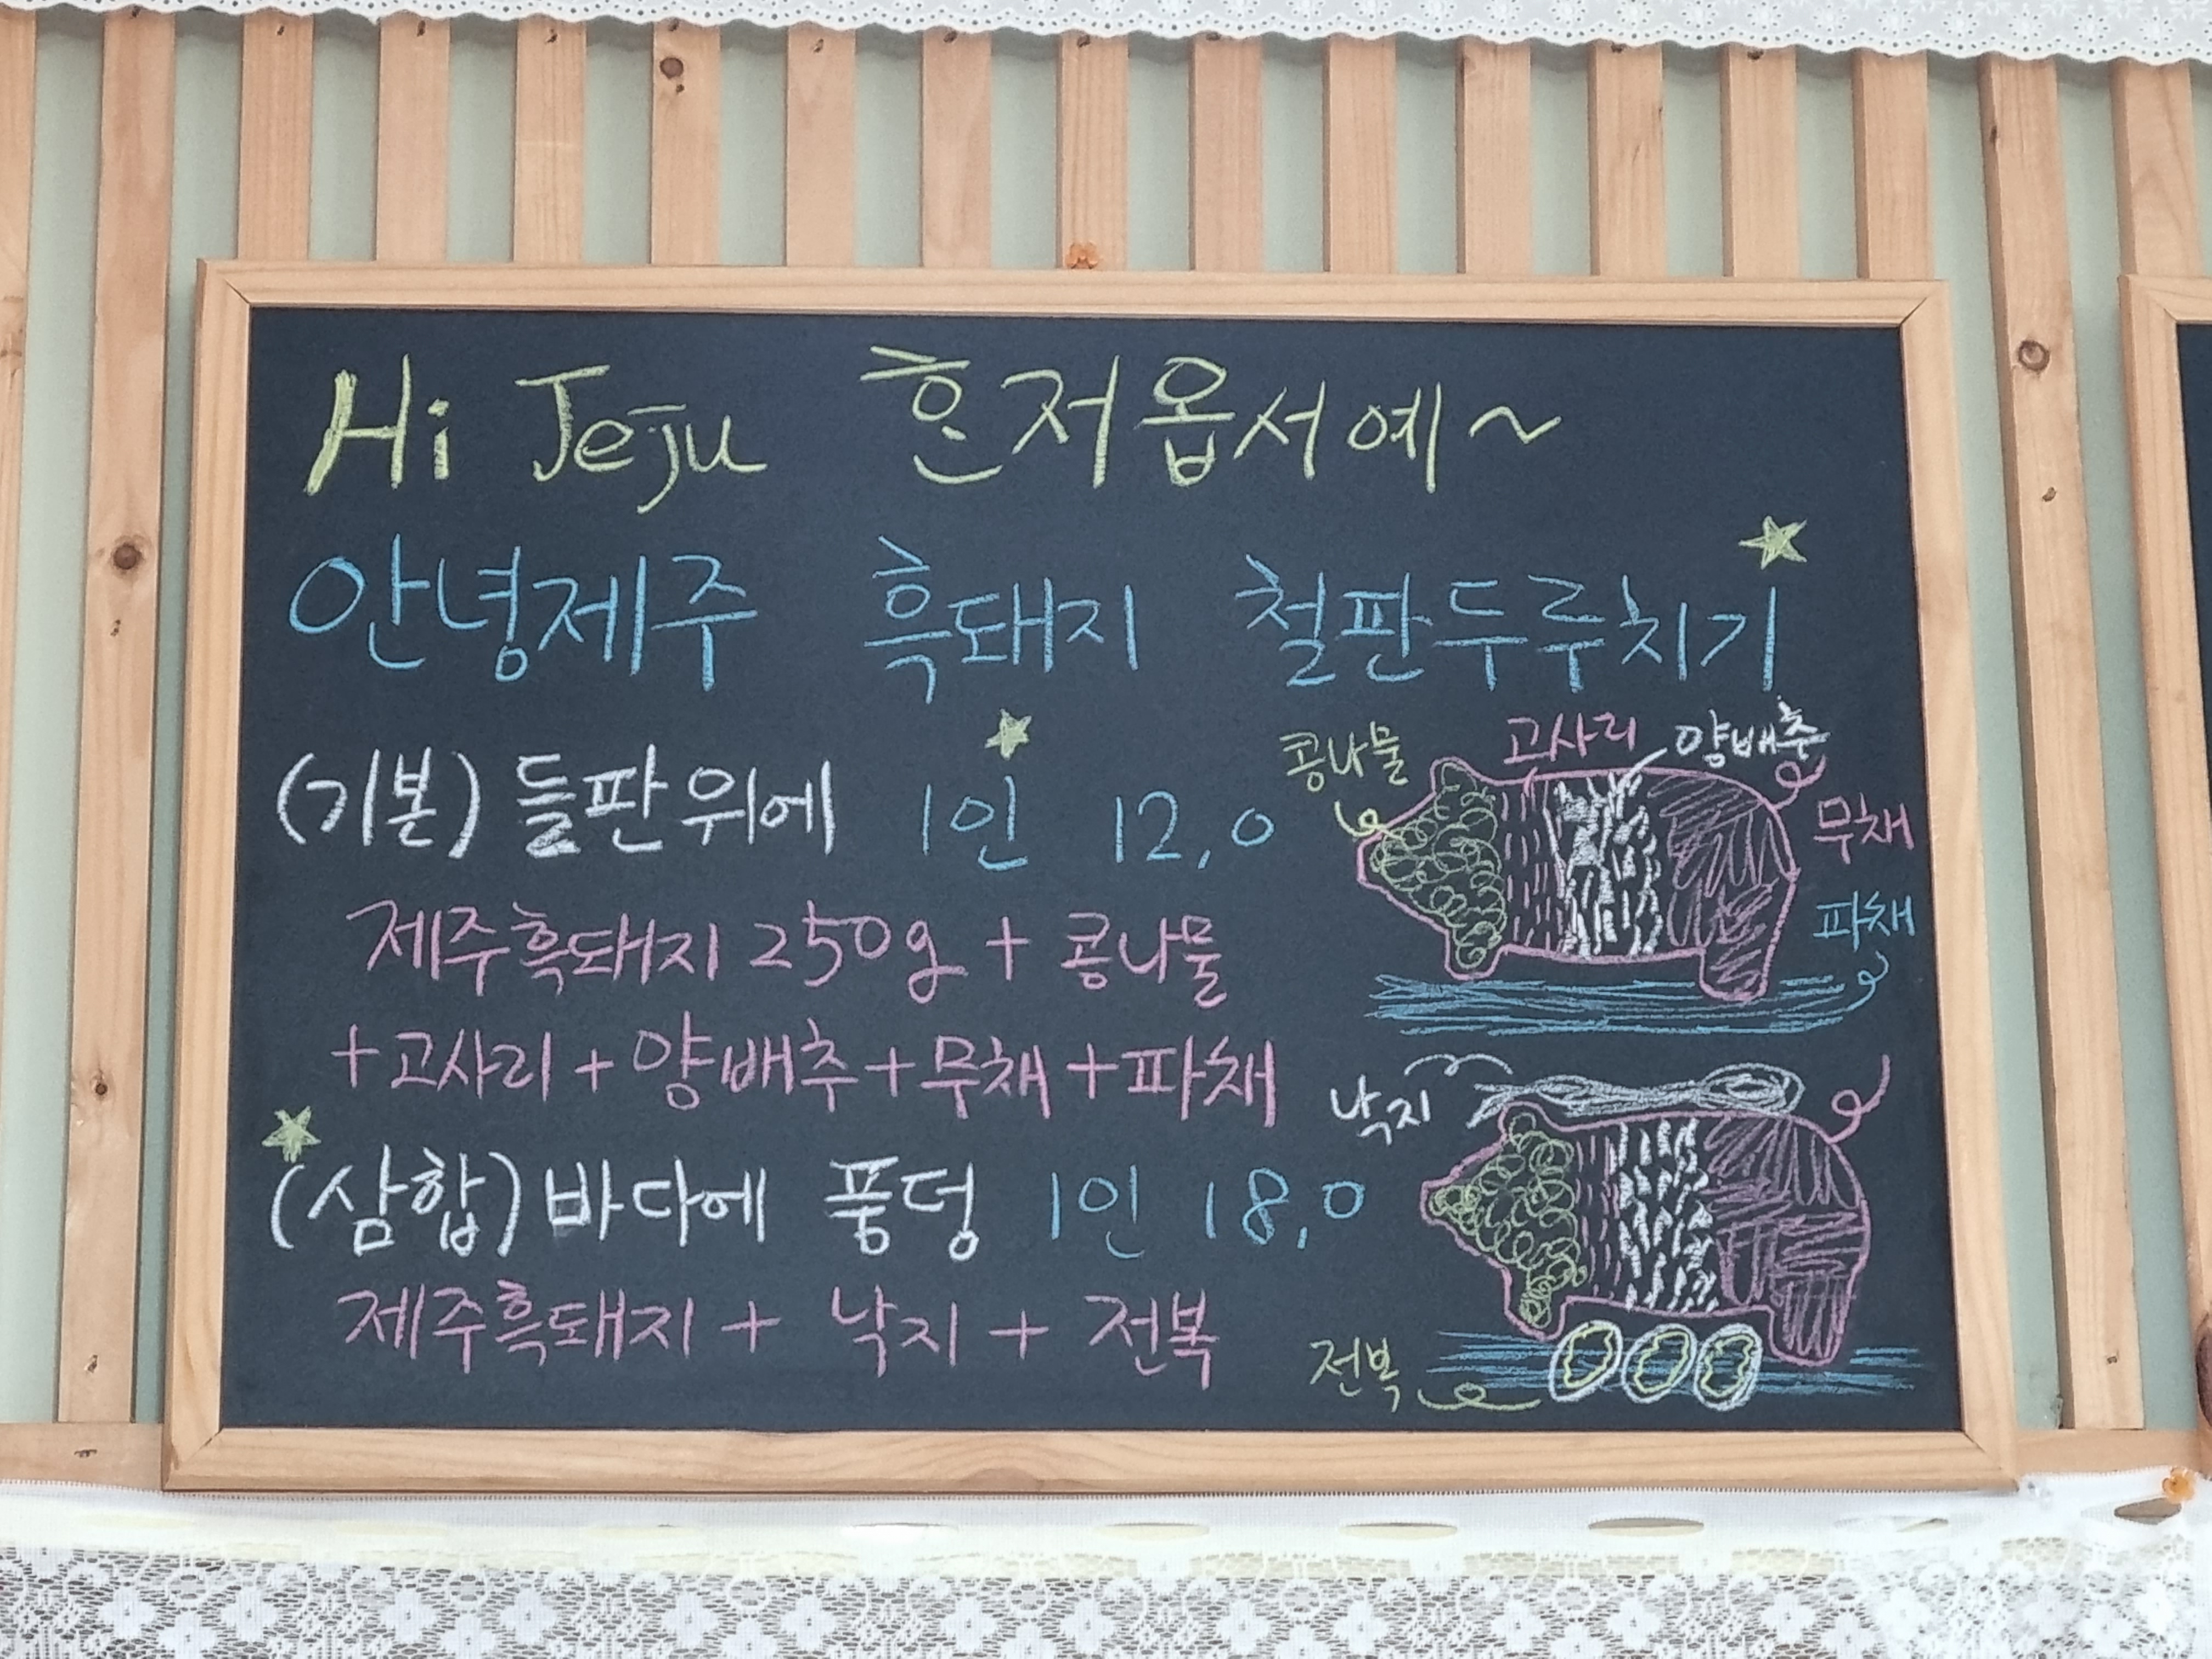 Hi Jeju 혼저옵서예~
안녕제주 흑돼지 철판두루치기
(기본) 들판위에 1인 12,0
제주흑돼지 250g + 콩나물
+고사리+양배추+무채+파채
(삼합)바다에 풍덩 1인 18,0
제주흑돼지 + 낙지 + 전복
콩나물
고사리
양배추
무채
파채
낙지
전복